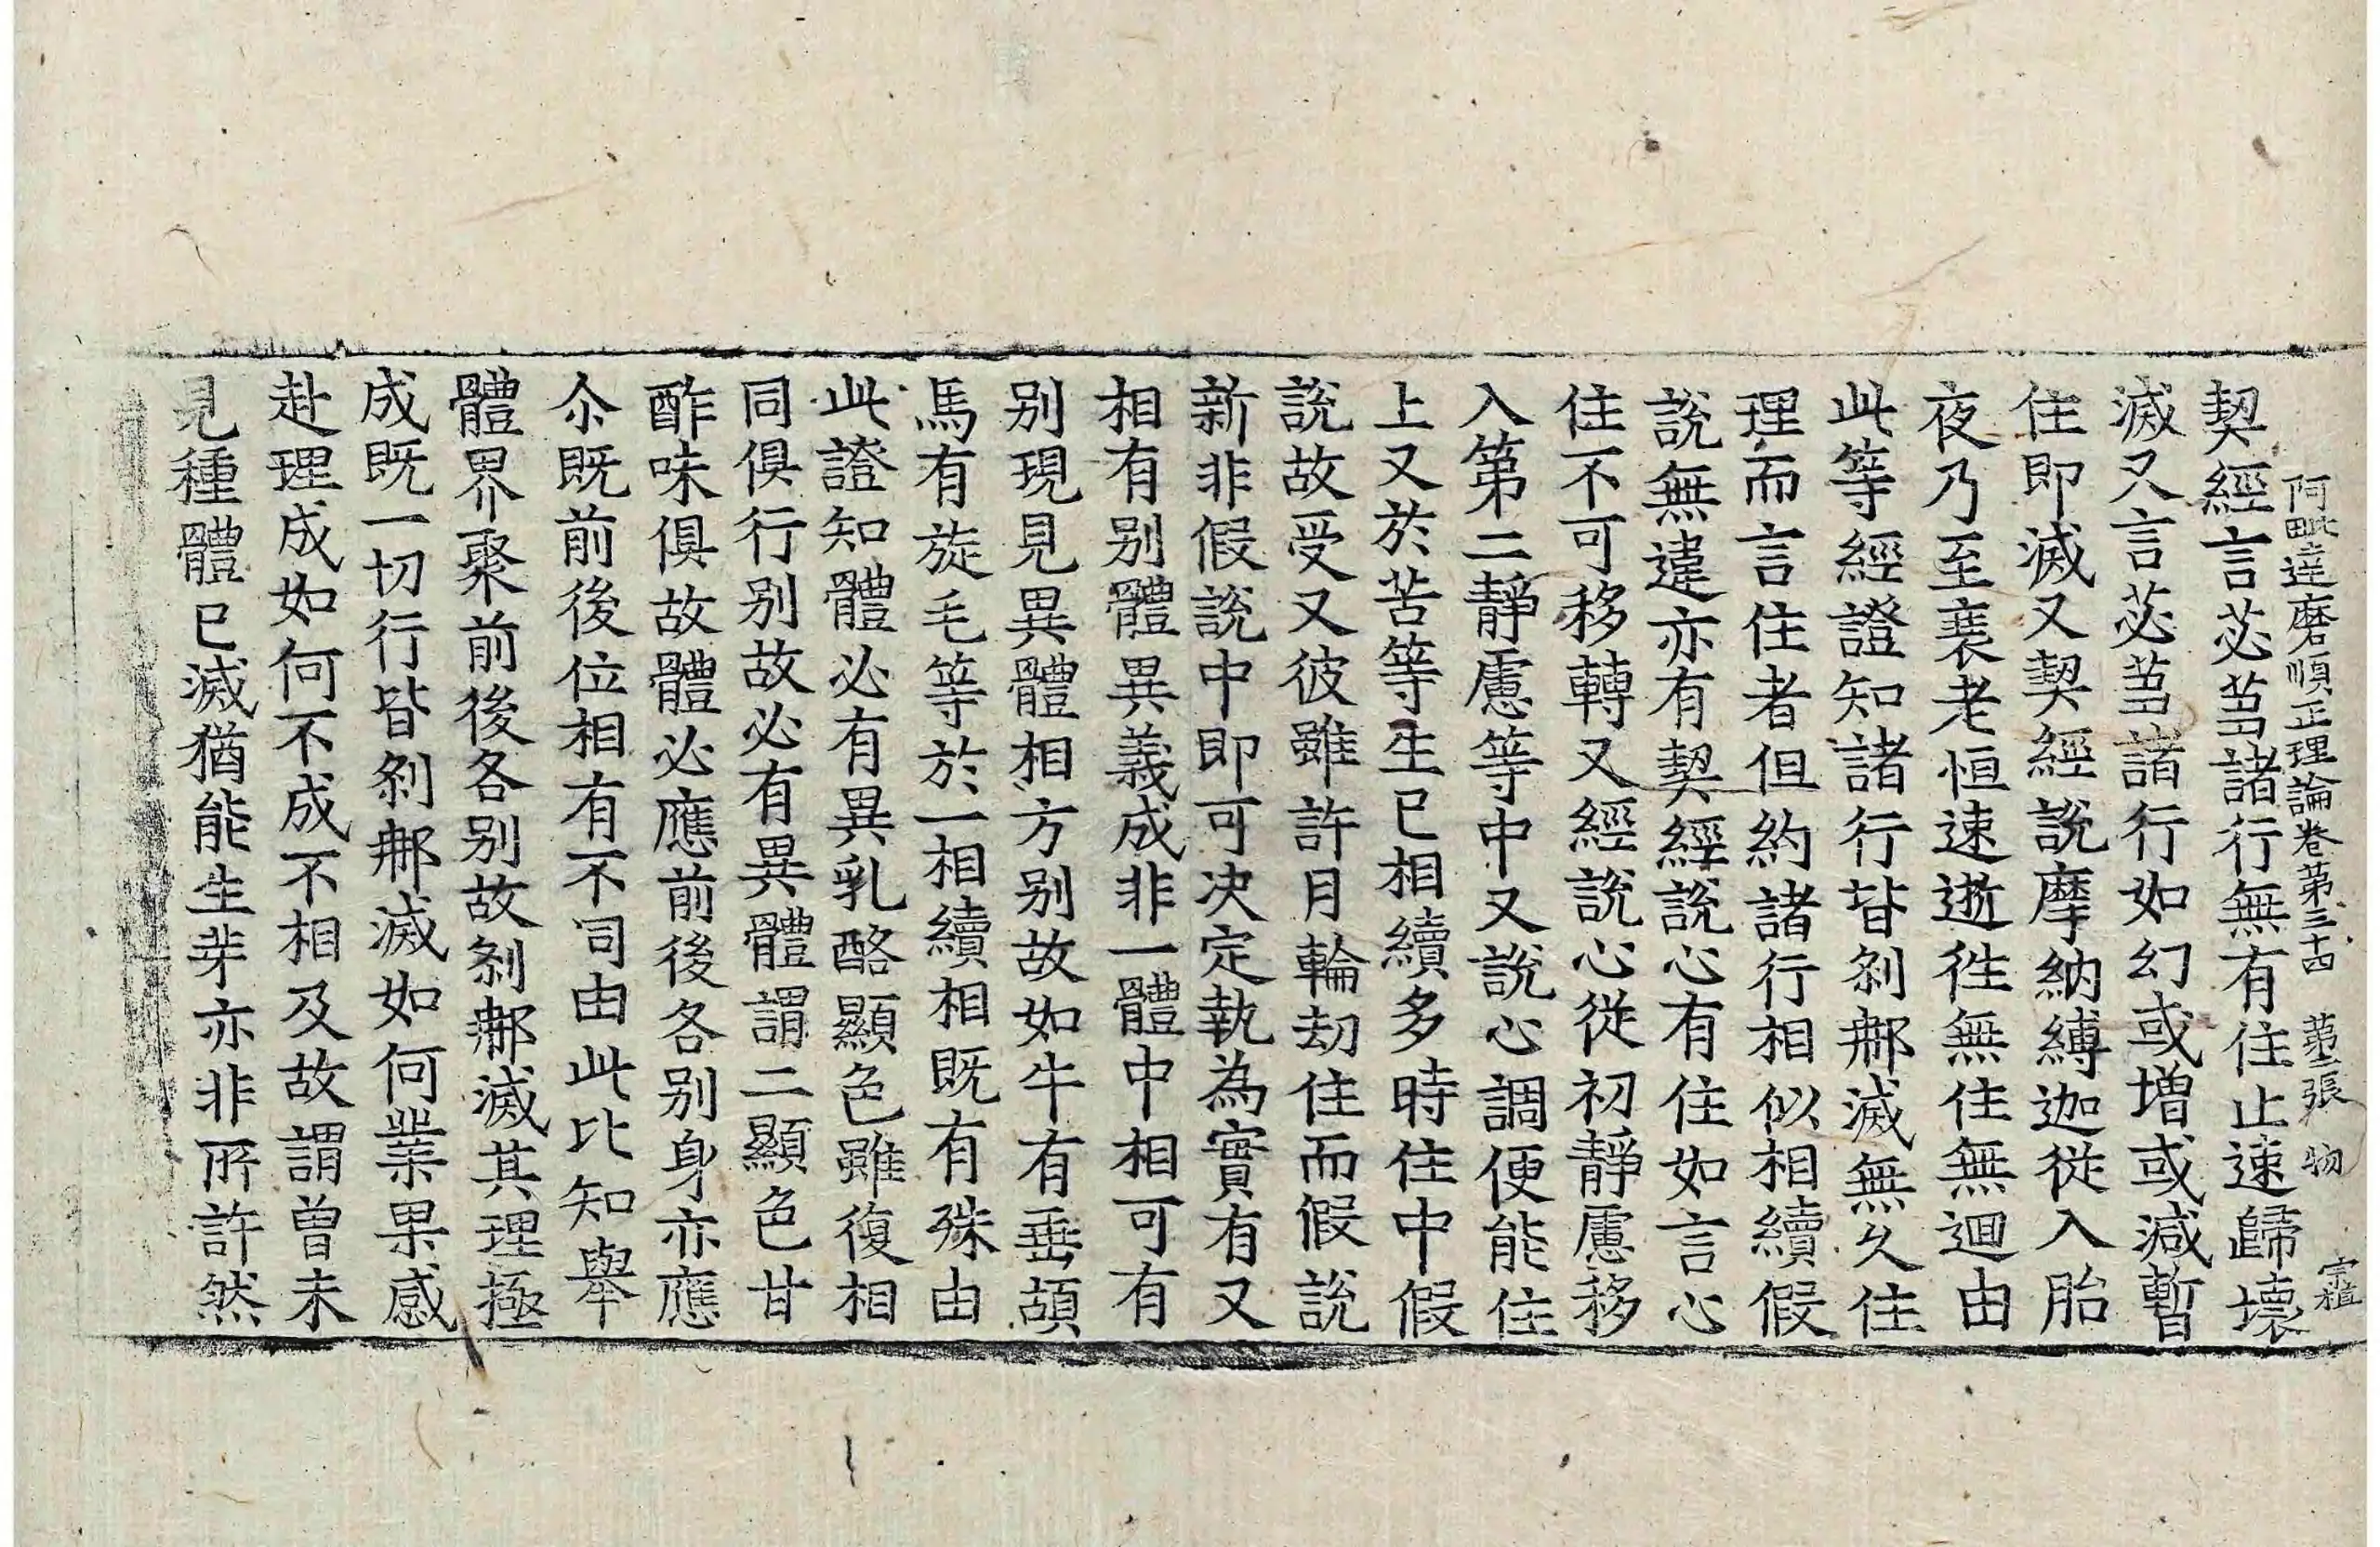 阿毗達磨順正理論卷第三十四 第二張 物 宗植
契經言苾芻諸行無有住止速歸壞
滅又言苾芻諸行如幻或增或減暫
住即滅又契經說摩納縛迦從入胎
夜乃至衰老恒速逝徃無住無迴由
此等經證知諸行皆剎那滅無久住
理而言住者但約諸行相似相續假
說無違亦有契經說心有住如言心
住不可移轉又經說心從初靜慮移
入第二靜慮等中又說心調便能住
上又於苦等生已相續多時住中假
說故受又彼雖許月輪劫住而假說
新非假說中即可決定執為實有又
相有別體異義成非一體中相可有
別現見異體相方別故如牛有垂䫇
馬有旋毛等於一相續相既有殊由
此證知體必有異乳酪顯色雖復相
同俱行別故必有異體謂二顯色甘
酢味俱故體必應前後各別身亦應
尒既前後位相有不同由此比知舉
體界聚前後各別故剎那滅其理極
成既一切行皆剎那滅如何業果感
赴理成如何不成不相及故謂曾未
見種體已滅猶能生芽亦非所許然